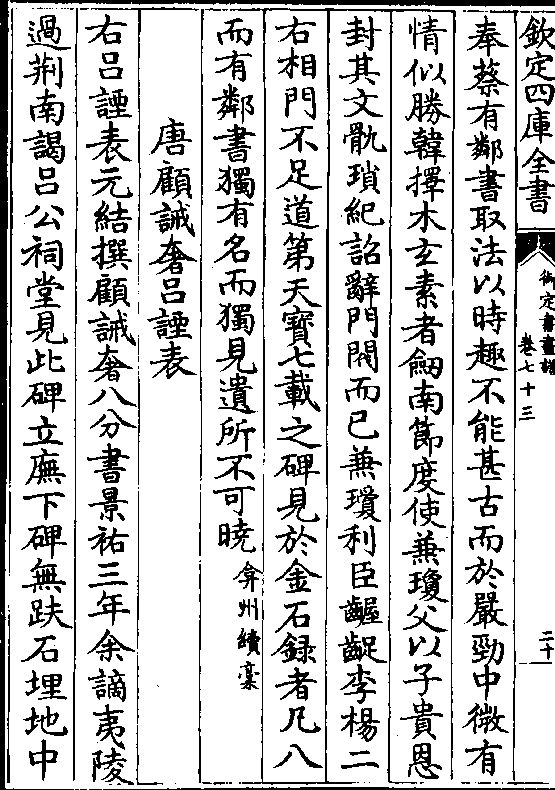 欽定四庫全書
御定書畫譜
卷七十三
二十
奉蔡有鄰書取法以時趣不能甚古而於嚴勁中微有
情似勝韓擇木玄素者劔南節度使兼瓊父以子貴恩
封其文骩瑣紀詔辭門閥而已兼瓊利臣齷齪李楊二
右相門不足道第天寳七載之碑見於金石録者凡八
而有鄰書獨有名而獨見遺所不可曉 弇州續藁
唐顧誡奢吕諲表
右吕諲表元結撰顧誡奢八分書景祐三年余謫夷陵
過荆南謁吕公祠堂見此碑立廡下碑無趺石埋地中